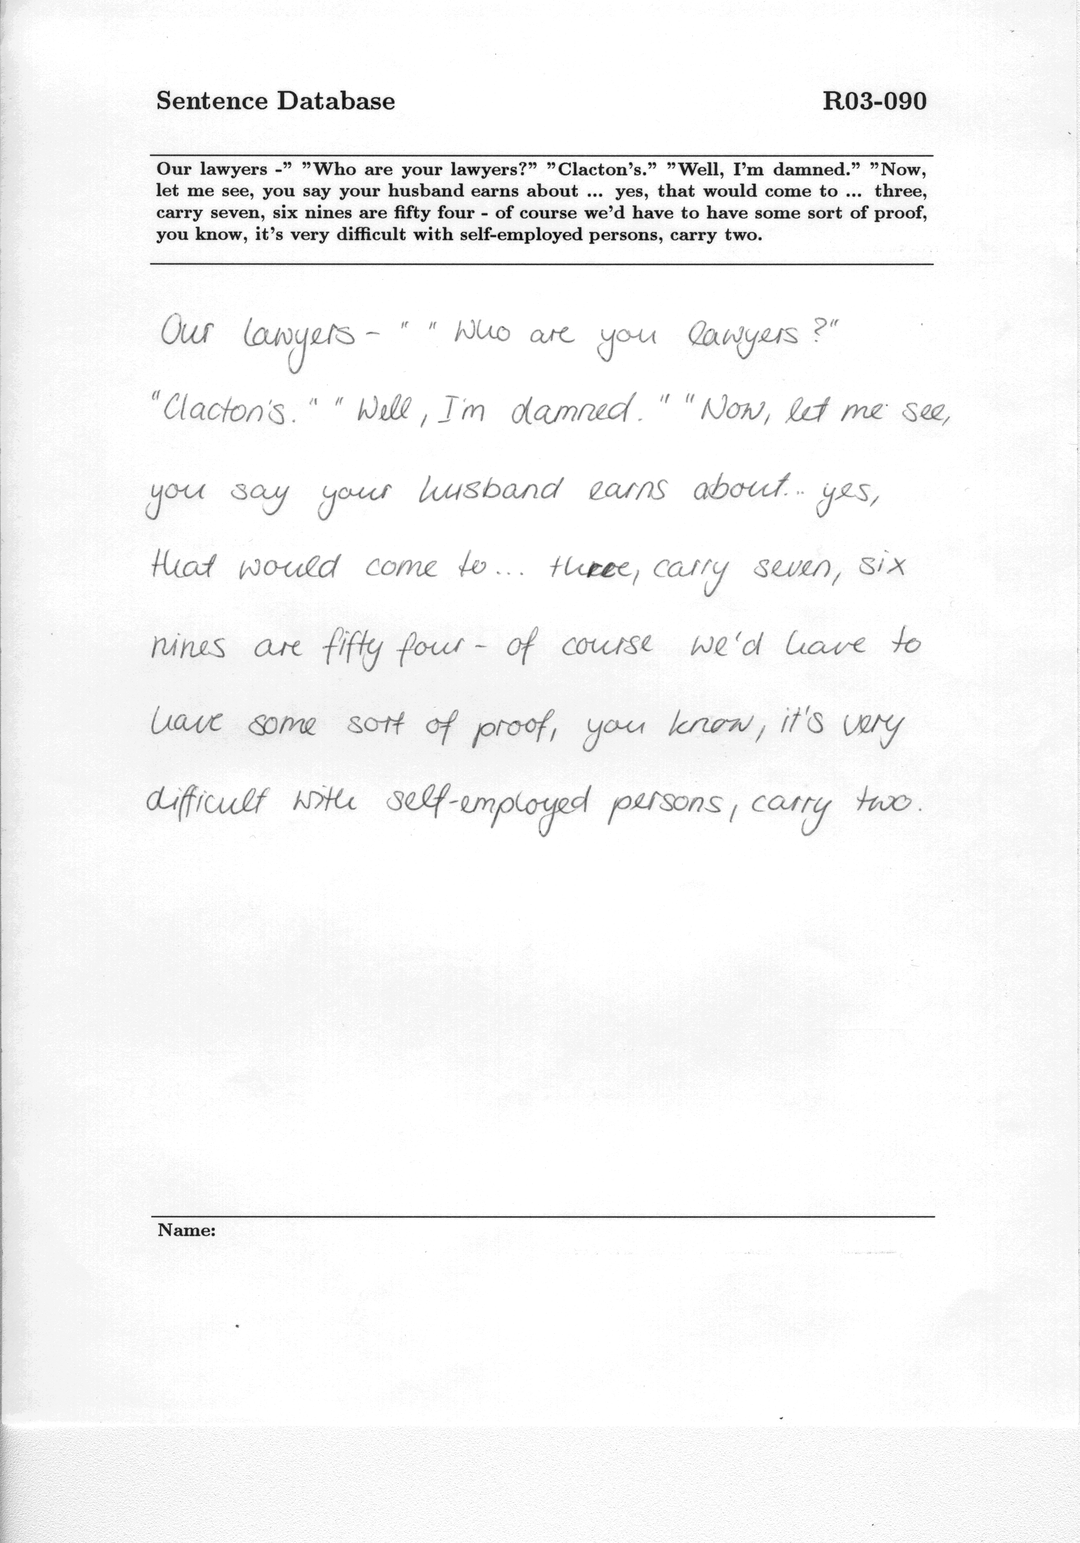 Sentence Database R03-090
Our lawyers -” ”Who are your lawyers?” ”Clacton’s.” ”Well, I’m damned.” ”Now,
let me see, you say your husband earns about ... yes, that would come to ... three,
carry seven, six nines are fifty four - of course we’d have to have some sort of proof,
you know, it’s very difficult with self-employed persons, carry two.
Our lawyers - " " Who are you lawyers ?"
"Clacton's." " Well, I'm damned. " "Now, let me see,
you say your husband earns about... yes,
that would come to ... three, carry seven, six
nines are fifty four - of course we'd have to
have some sort of proof, you know, it's very
difficult with self-employed persons, carry two.
Name: